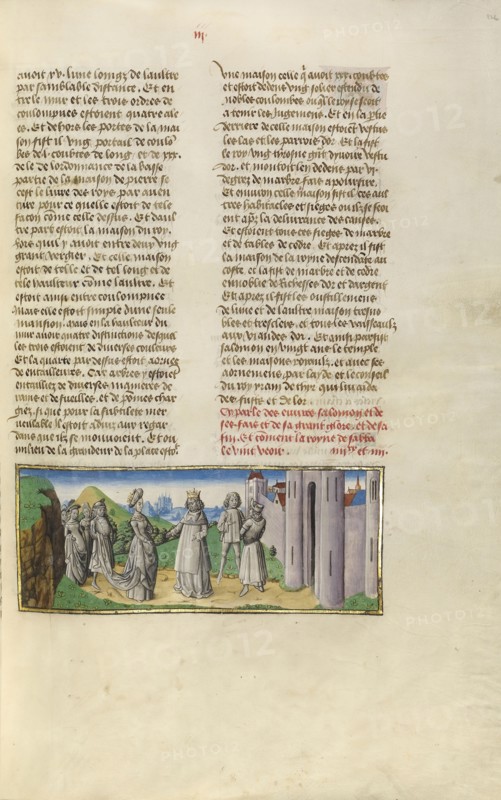 iii
avoit xv. lune longz de laultre
par samblable distance. Et en
tre le mur et les trois ordres de
coulompnes estoient quatre ale
es. Et dehors les portes de la mai
son fist il ung portail de
de l. coubtes de long et de xxx.
de le de lordonnance de la basse
partie de la maison de pierre se
cest le livre des roys par aven
ture pour ce quelle estoit de tele
facon come celle dessus. Et daul
tre part estoit la maison du roy.
hors quil y avoit entre deux ung
grant vergier. Et celle maison
estoit de telle et de tel long et de
tele haulteur come laultre. Et
estoit ainsi entre coulompnee
mais elle estoit simple dune seule
mansion. mais en la haulteur du
mur avoit quatre distinctions desquel
les trois estoient de diverses couleurs
Et la quarte par dessus estoit aornee
de entailleures. Car arbres y estoiet
entailliez de diverses manieres de
rains et de fueilles. et de pomes char
giez. si que pour la subtilete mer
veillable il estoit advis aux regar
dans que ilz se mouvoient. Et ou
milieu de la grandeur de la place estoit
une maison celle q avoit xxx. coubtes
et estoit dedens ung solier estendu de
nobles coulombes ou q le roy se seoit
a tenir les jugemens. Et en la ptie
derriere de celle maison estoiet vestus
les las et les parvois dor. Et la fist
le roy ung throsne grant dyvoire vestu
dor. et montoit len dedens par vi.
degrez de marbre fais a pourfire.
Et environ celle maison fist il ces aul
tres habitacles et sieges ou la se seoit
ent aps la delivrance des causes.
Et estoient tous ces sieges de marbre
et de tables de cedre. Et apres il fist
la maison de la royne descendate au
coste. et la fist de marbre et de cedre
ennoblie de richesses dor et dargent
Et apres il fist les oustillemens
de lune et de laultre maison tres no
bles et tres clers. et tous les vaisseaulz
aux viandes dor. Et ainsi parfist
salomon en vingt ans le temple
et les maisons royaulx. et avec ses
aornemens. par layde et le conseil
du roy yram de thir qui lui aida
de fustz et de lor.
Cy parle des euvres salomon et de
ses fais et de sa grant glore. et de sa
fin. Et coment la royne de sabba
le vint veoir. iiii et iii.
PHOTO12